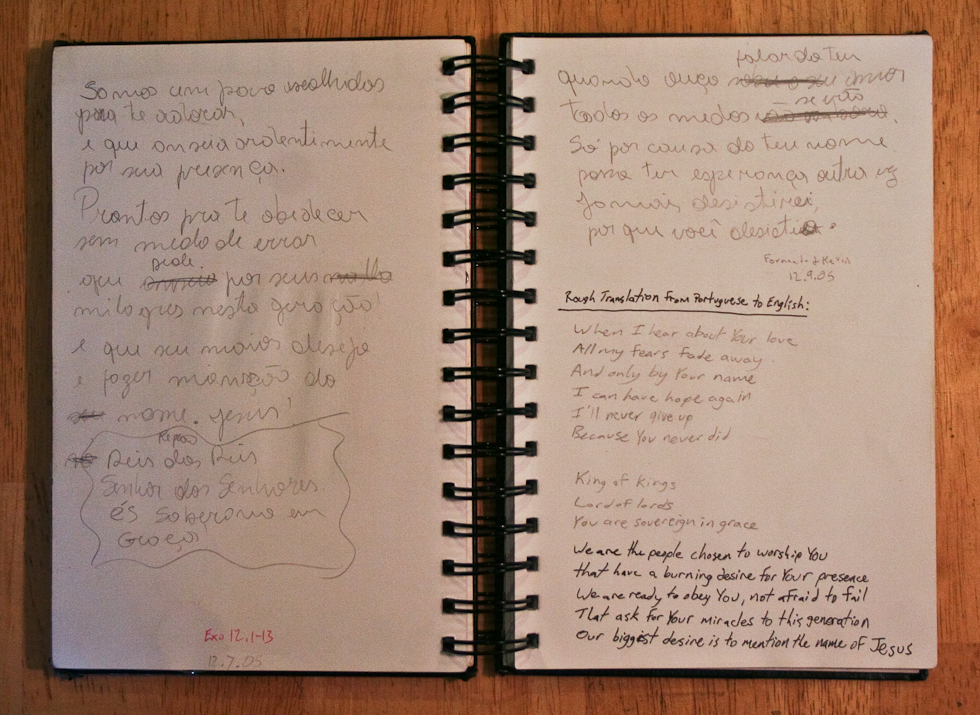 Somos um povo escolhidos
para te adorar,
e que anseia ardentimente
por sua presença.
Prontos pra te obedecer
sem medo de errar
pede.
que anseia por seus
milagres nesta geração
e que seu maior desejo
e fazer menição do
nome. Jesus!
Reis dos Reis
Senhor dos Senhores
és Soberano em
Graça
Exo 12.1-13
12.7.05
falar do teu
quando ouço amor
se vão
todos os medos
Só por causa do teu nome
posso ter esperança outra vez
Jamais desistirei,
por que você
12.9.05
Rough Translation from Portuguese to English:
When I hear about Your love
All my fears fade away.
And only by Your name
I can have hope again
I'll never give up
Because You never did
King of kings
Lord of lords
You are sovereign in grace
We are the people chosen to worship You
that have a burning desire for Your presence
We are ready to obey You, not afraid to fail
That ask for Your miracles to this generation
Our biggest desire is to mention the name of Jesus